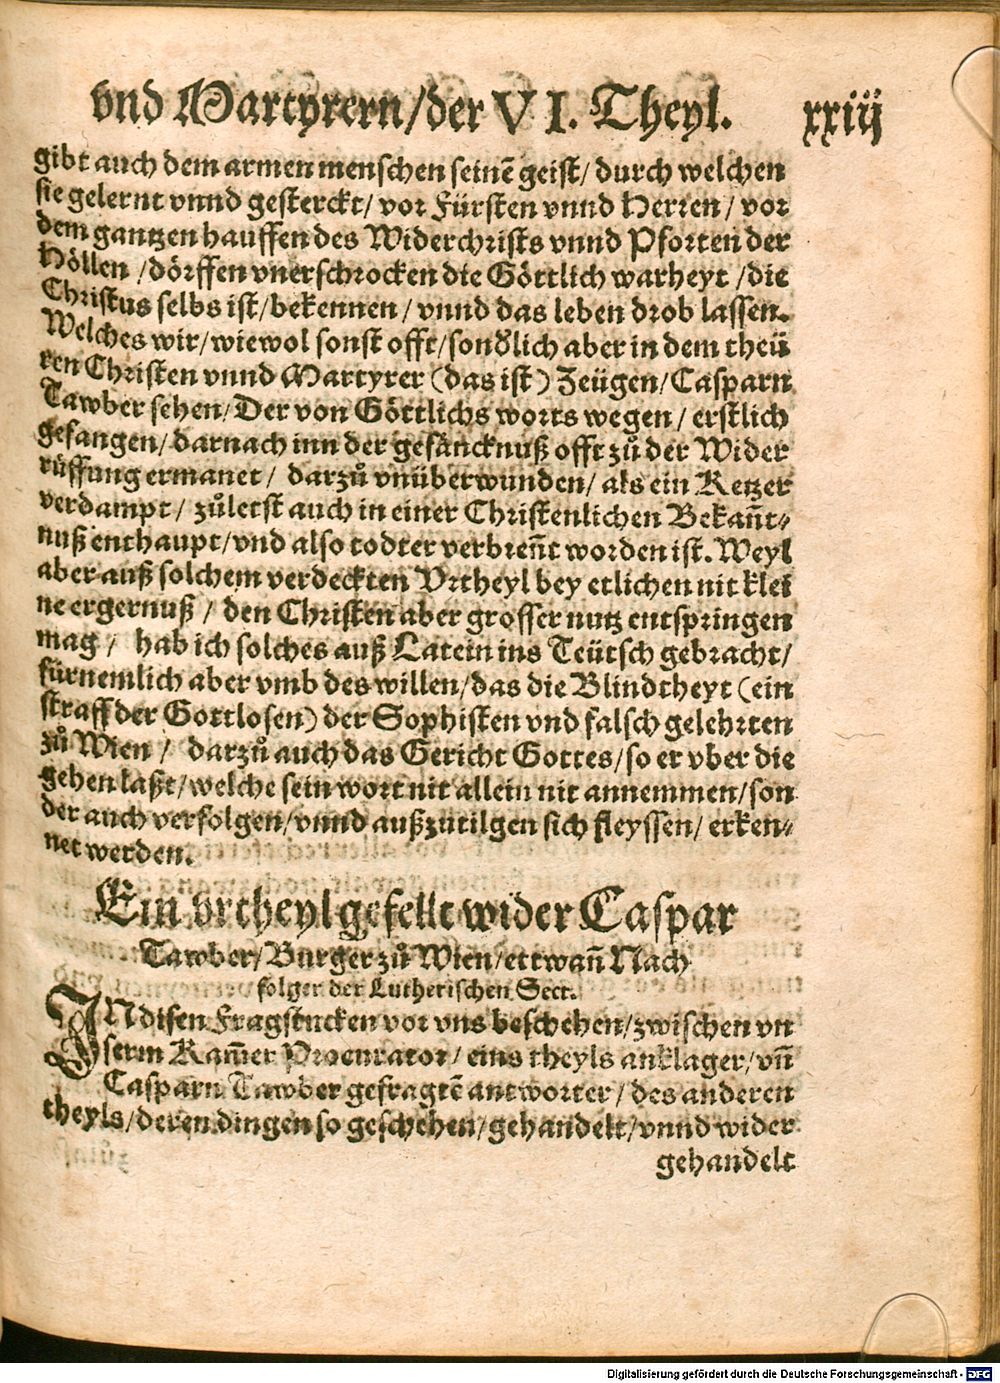 vnd Martyrern/der VI. Theyl. xxiij
gibt auch dem armen menschen seinē geist/ durch welchen
sie gelernt vnnd gesterckt/ vor Fürsten vnnd Herren/ vor
dem gantzen hauffen des Widerchrists vnnd Pforten der
Höllen /dörffen vnerschrocken die Göttlich warheyt /die
Christus selbs ist/bekennen/ vnnd das leben drob lassen.
Welches wir/wiewol sonst offt/sonðlich aber in dem theü
ren Christen vnnd Martyrer (das ist) Zeügen/Casparn
Tawber sehen/Der von Göttlichs worts wegen/ erstlich
gefangen/darnach inn der gefäncknuß offt zů der Wider
rüffung ermanet/ darzů vnüberwunden/ als ein Ketzer
verdampt/ zůletst auch in einer Christenlichen Bekañt-
nuß enthaupt/vnd also todter verbreñt worden ist. Weyl
aber auß solchem verdeckten Vrtheyl bey etlichen nit klei
ne ergernuß/ den Christen aber grosser nutz entspringen
mag/ hab ich solches auß Latein ins Teütsch gebracht/
fürnemlich aber vmb des willen/das die Blindtheyt (ein
straff der Gottlosen) der Sophisten vnd falsch gelehrten
zů Wien/ darzů auch das Gericht Gottes/so er vber die
gehen laßt/welche sein wort nit allein nit annemmen/son
der auch verfolgen/vnnd außzutilgen sich fleyssen/ erken-
net werden.
Ein vrtheyl gefellt wider Caspar
Tawber/Burger zů Wien/ettwañ Nach
folger der Lutherischen Sect.
IN disen Fragstucken vor vns beschehen/zwischen vn
serm Kam̃er Procurator/ eins theyls anklager/vñ
Casparn Tawber gefragtē antworter/ des anderen
theyls/deren dingen so geschehen/gehandelt/vnnd wider
gehandelt
Digitalisierung gefördert durch die Deutsche Forschungsgemeinschaft - DFG